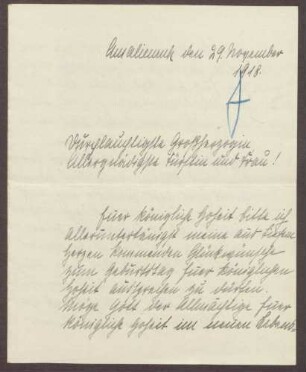 Amalienruh den 29. November
1918.
Durchlauchtigste Großherzogin
Allergnädigste Fürstin und Frau!
Euer Königliche Hoheit bitte ich
alleruntertänigst meine aus tiefem
Herzen kommenden Glückwünsche
zum Geburtstag Euer Königlichen
Hoheit aussprechen zu dürfen.
Möge Gott der Allmächtige Euer
Königliche Hoheit im neuen Lebens-